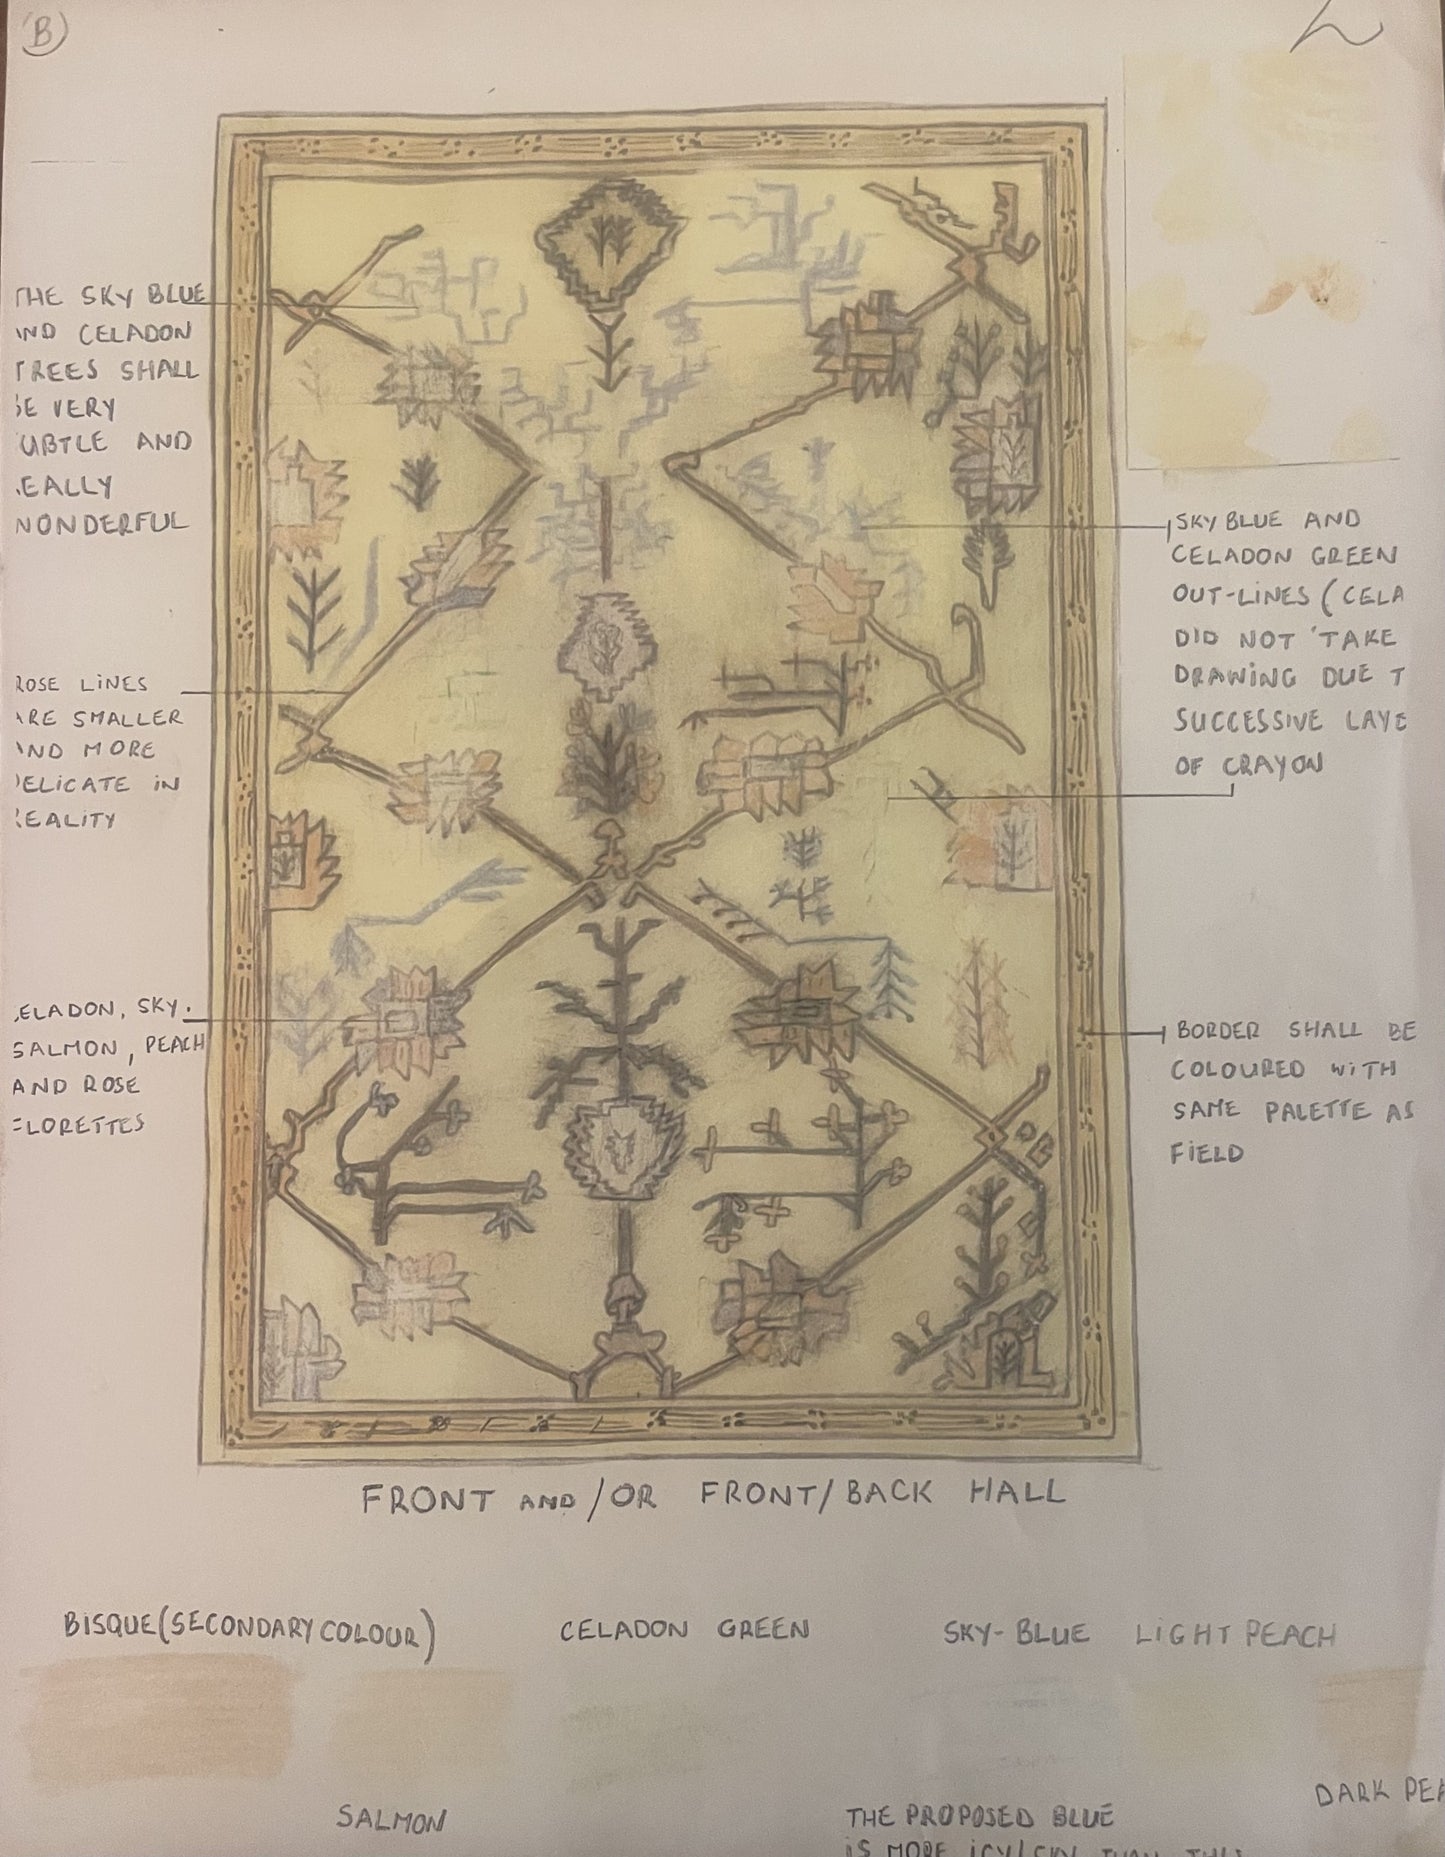 B
THE SKY BLUE
AND CELADON
TREES SHALL
BE VERY
SUBTLE AND
REALLY
WONDERFUL
ROSE LINES
ARE SMALLER
AND MORE
DELICATE IN
REALITY
CELADON, SKY.
SALMON, PEACH
AND ROSE
FLORETTES
SKY BLUE AND
CELADON GREEN
OUT-LINES (CELA
DID NOT TAKE
DRAWING DUE T
SUCCESSIVE LAYE
OF CRAYON
BORDER SHALL BE
COLOURED WITH
SAME PALETTE AS
FIELD
FRONT AND/OR FRONT/BACK HALL
BISQUE (SECONDARY COLOUR)
CELADON GREEN
SKY-BLUE
LIGHT PEACH
SALMON
THE PROPOSED BLUE
IS MORE ICY/SKY THAN THIS
DARK PEA